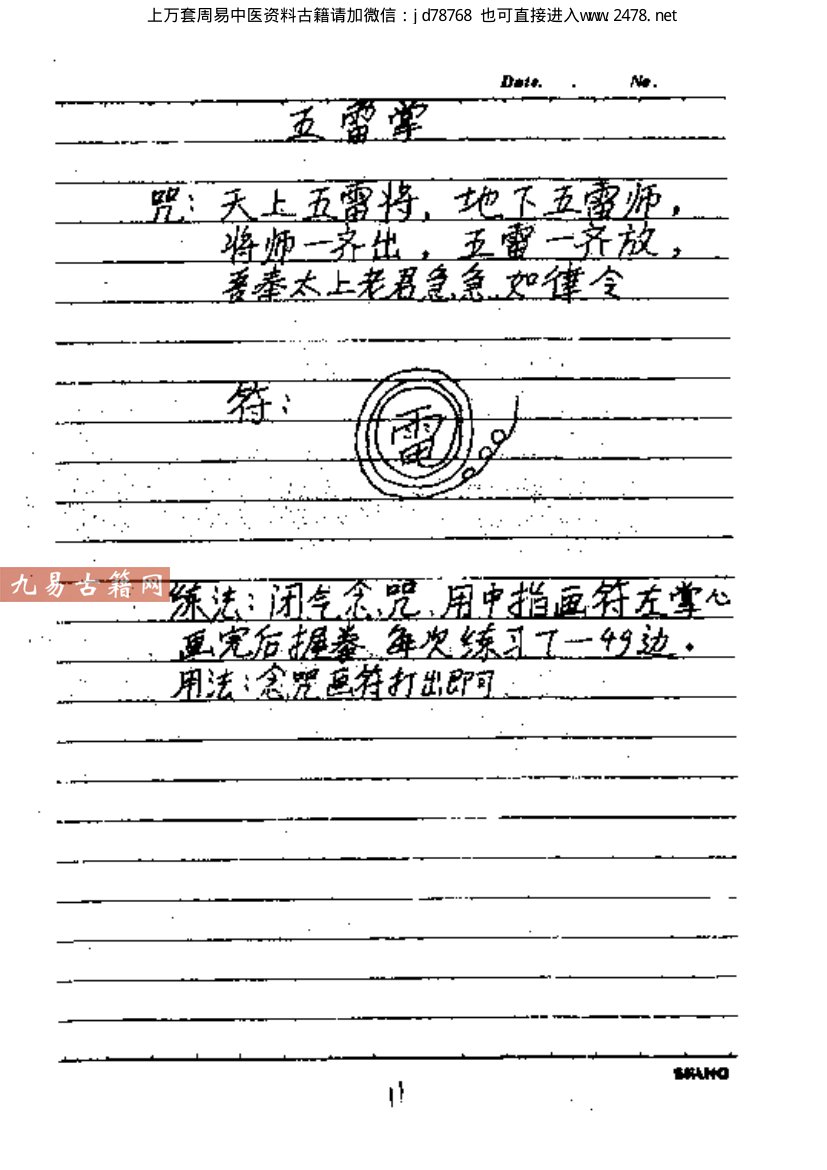 上万套周易中医资料古籍请加微信：jd78768 也可直接进入www.2478.net
Date. . No.
五雷掌
咒：天上五雷将，地下五雷师，
将师一齐出，五雷一齐放，
吾奉太上老君急急如律令
符：
雷
九易古籍网
练法：闭气念咒、用中指画符左掌心
画完后握拳 每次练习了一49边.
用法：念咒画符打出即可
11